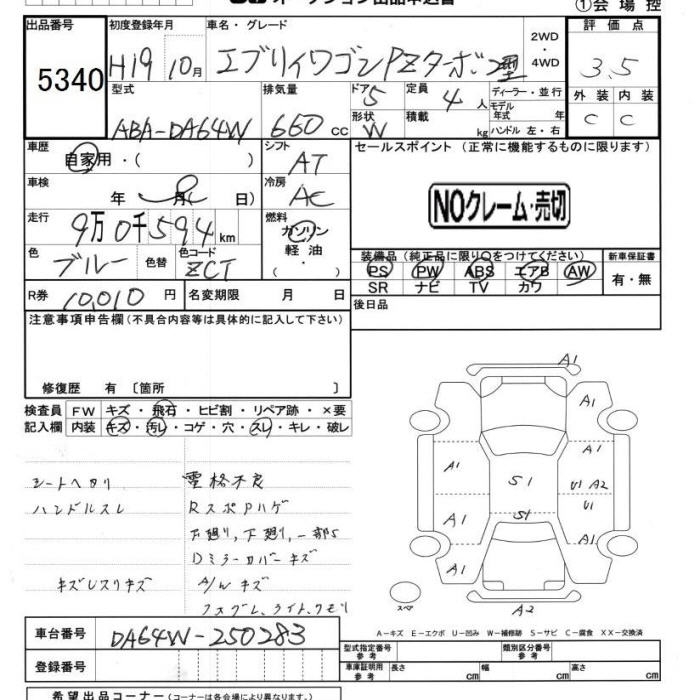 ①会 場 控
出品番号
5340
初度登録年月
H19 10月
車名・グレード
エブリィワゴンPZターボ 2型
2WD
・
4WD
評 価 点
3.5
型式
ABA-DA64W
排気量
660 cc
ドア
5
定員
4 人
ディーラー・並行
モデル
年式 年
形状
W
積載
kg
ハンドル 左・右
外 装 内 装
C C
車歴
自家用・( )
シフト
AT
セールスポイント (正常に機能するものに限ります)
車検
年 月( 日)
冷房
AC
NOクレーム・売切
走行
9万0千594km
燃料
ガソリン
軽 油
・( )
色
ブルー
色替
色コード
ZCT
装備品 (純正品に限り○をつけてください)
新車保証書
PS PW ABS エアB AW
SR ナビ TV カワ
有・無
R券 10,010 円
名変期限 月 日
後日品
注意事項申告欄(不具合内容等は具体的に記入して下さい)
修復歴 有〔箇所 〕
検査員
記入欄
FW キズ・飛石・ヒビ割・リペア跡・×要
内装 キズ・汚レ・コゲ・穴・スレ・キレ・破レ
シートヘタリ
ハンドルスレ
キズレスリキズ
電格不良
RスポPハゲ
下廻り,下廻り,一部S
Dミラーカバーキズ
A/W キズ
A1
A1
A1
S1
U1 A2
U1
A1
S1
A1
A1
A2
スペア
A-キズ E-エクボ U-凹み W-補修跡 S-サビ C-腐食 XX-交換済
車台番号
DA64W-250283
登録番号
型式指定番号
参 考
類別区分番号
車庫証明用
参 考
長さ
cm
幅
cm
高さ
cm
希望出品コーナー(コーナーは各会場により異なります。)